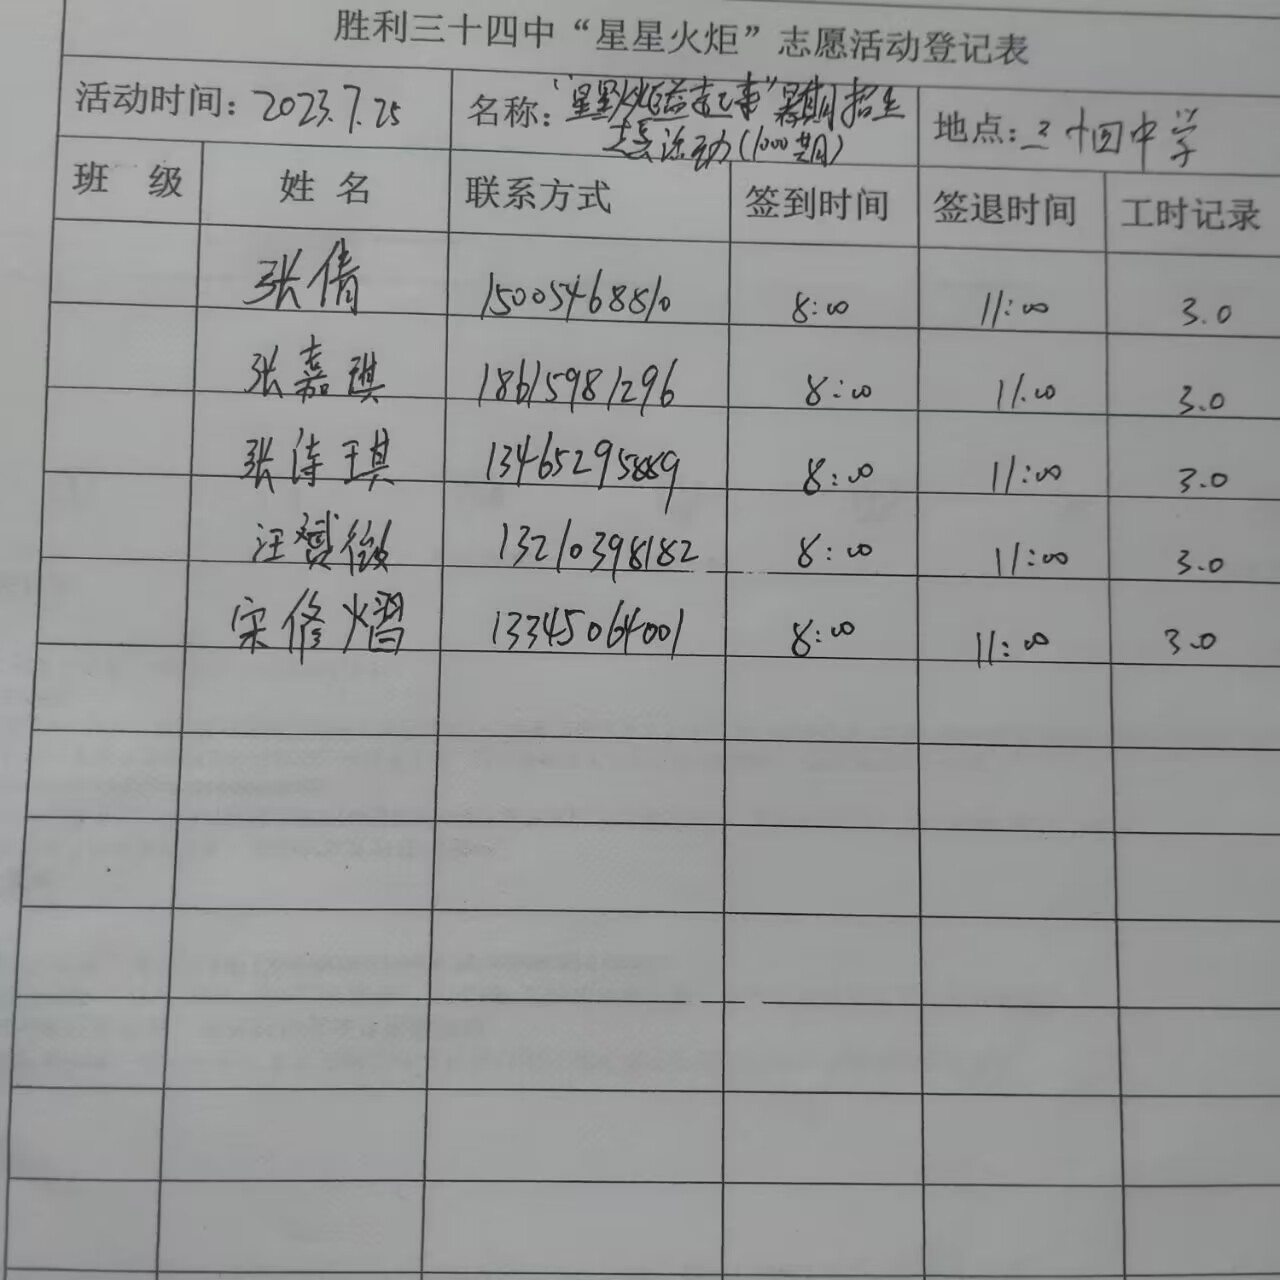 胜利三十四中“星星火炬”志愿活动登记表
活动时间: 2023.7.25 名称: “星星火炬 暑期招生 地点: 三十四中学
志愿活动(1000期)
班 级 姓 名 联系方式 签到时间 签退时间 工时记录
张倩 15005468810 8:00 11:00 3.0
张嘉琪 18615981296 8:00 11:00 3.0
张涛琪 13465295889 8:00 11:00 3.0
汪赟微 13210398182 8:00 11:00 3.0
宋修熠 13345064001 8:00 11:00 3.0